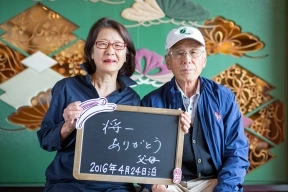 将一
ありがとう
父母
2016年4月24日